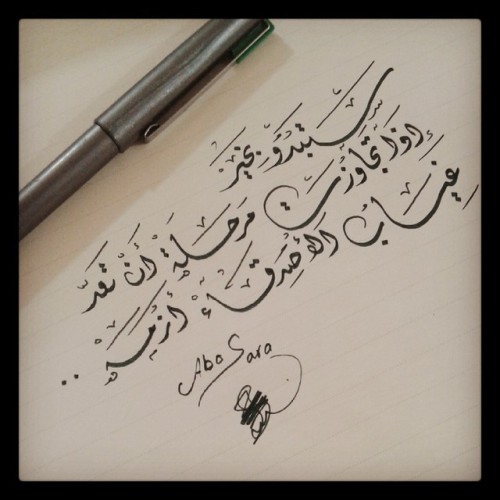 ستبدو بخير
إذا تجاوزت مرحلة أن تعدّ
غياب الأصدقاء أزمة ..
Aba Sara